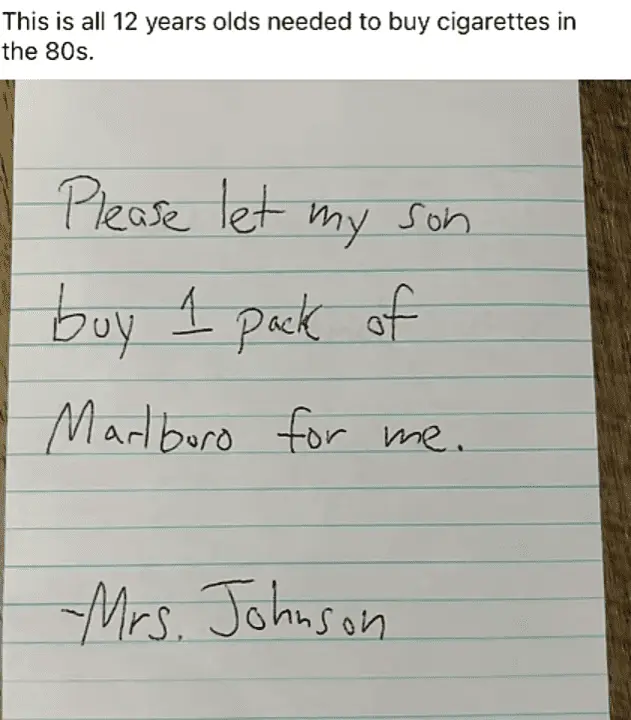 This is all 12 years olds needed to buy cigarettes in
the 80s.
Please let my son
buy 1 pack of
Marlboro for me.
-Mrs. Johnson